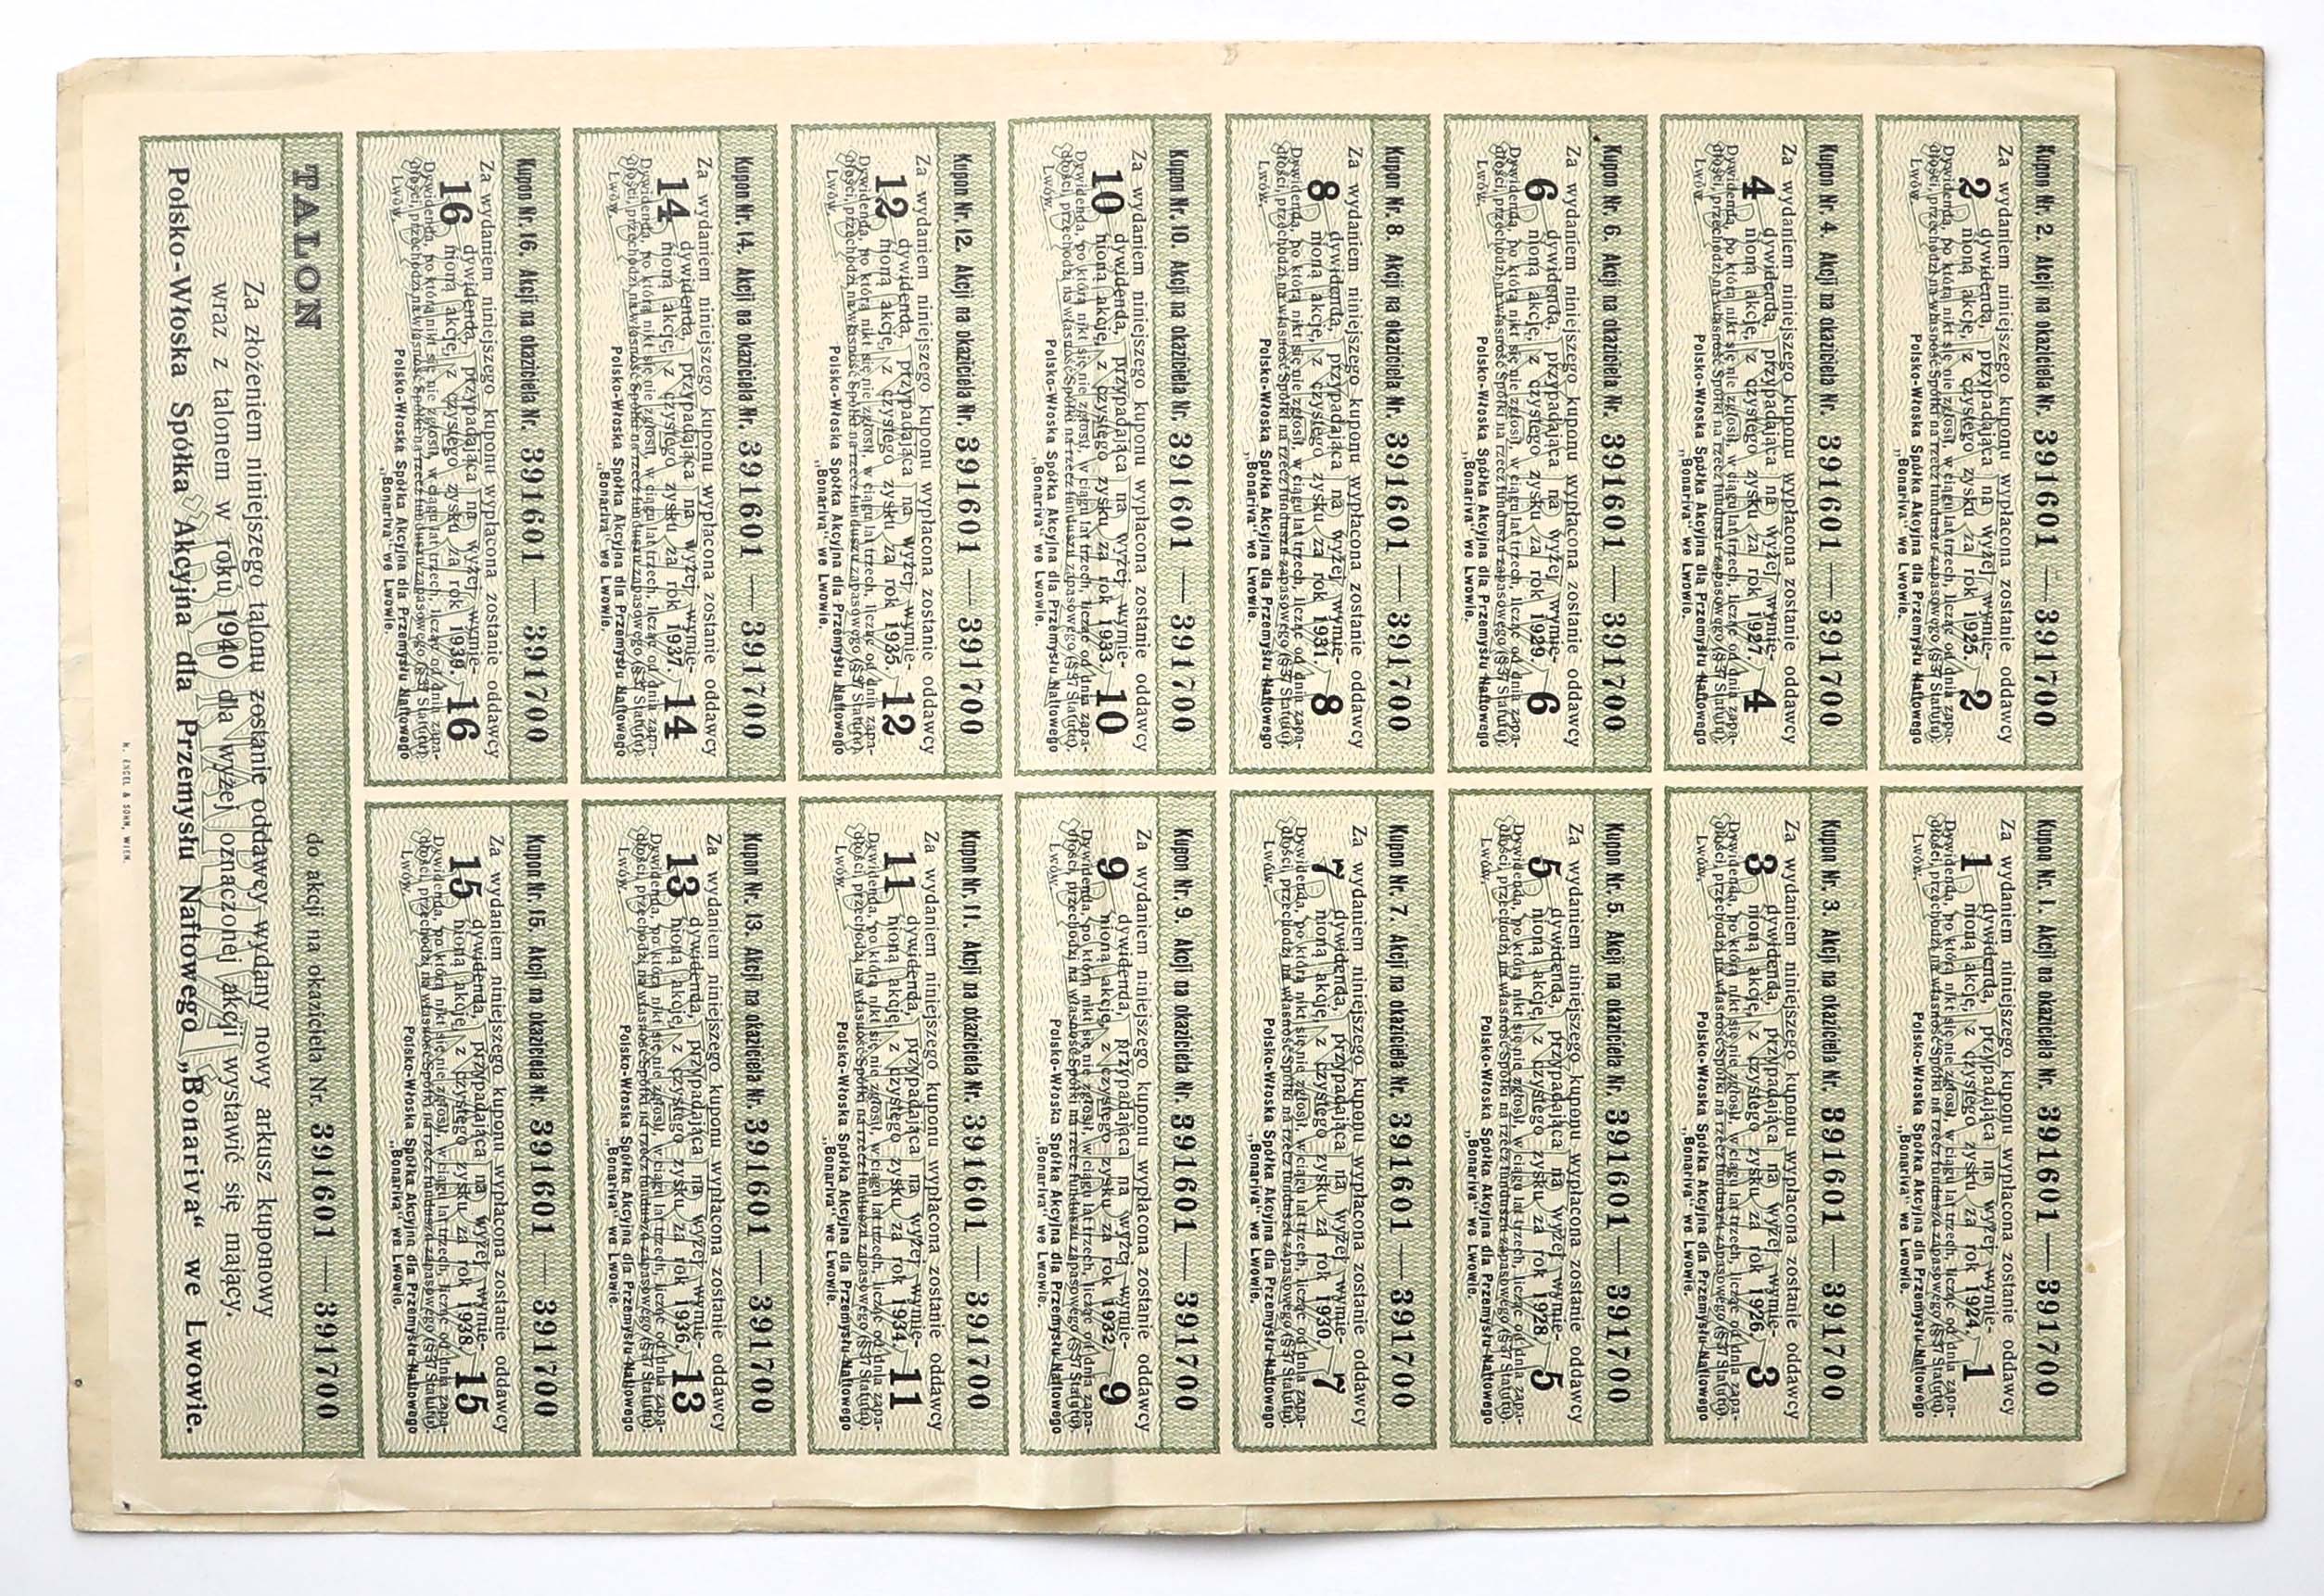 Kupon Nr. 2. Akcji na okaziciela Nr. 391601 — 391700
Za wydaniem niniejszego kuponu wypłacona zostanie oddawcy
dywidenda, przypadająca na wyżej wymie-
2 nioną akcję, z czystego zysku za rok 1925. 2
Dywidenda, po którą nikt się nie zgłosił, w ciągu lat trzech, licząc od dnia zapa-
dłości, przechodzi na własność Spółki na rzecz funduszu zapasowego (§ 37 Statutu).
Lwów. Polsko-Włoska Spółka Akcyjna dla Przemysłu Naftowego
„Bonariva“ we Lwowie.
Kupon Nr. 1. Akcji na okaziciela Nr. 391601 — 391700
Za wydaniem niniejszego kuponu wypłacona zostanie oddawcy
dywidenda, przypadająca na wyżej wymie-
1 nioną akcję, z czystego zysku za rok 1924. 1
Dywidenda, po którą nikt się nie zgłosił, w ciągu lat trzech, licząc od dnia zapa-
dłości, przechodzi na własność Spółki na rzecz funduszu zapasowego (§ 37 Statutu).
Lwów. Polsko-Włoska Spółka Akcyjna dla Przemysłu Naftowego
„Bonariva“ we Lwowie.
Kupon Nr. 4. Akcji na okaziciela Nr. 391601 — 391700
Za wydaniem niniejszego kuponu wypłacona zostanie oddawcy
dywidenda, przypadająca na wyżej wymie-
4 nioną akcję, z czystego zysku za rok 1927. 4
Dywidenda, po którą nikt się nie zgłosił, w ciągu lat trzech, licząc od dnia zapa-
dłości, przechodzi na własność Spółki na rzecz funduszu zapasowego (§ 37 Statutu).
Lwów. Polsko-Włoska Spółka Akcyjna dla Przemysłu Naftowego
„Bonariva“ we Lwowie.
Kupon Nr. 3. Akcji na okaziciela Nr. 391601 — 391700
Za wydaniem niniejszego kuponu wypłacona zostanie oddawcy
dywidenda, przypadająca na wyżej wymie-
3 nioną akcję, z czystego zysku za rok 1926. 3
Dywidenda, po którą nikt się nie zgłosił, w ciągu lat trzech, licząc od dnia zapa-
dłości, przechodzi na własność Spółki na rzecz funduszu zapasowego (§ 37 Statutu).
Lwów. Polsko-Włoska Spółka Akcyjna dla Przemysłu Naftowego
„Bonariva“ we Lwowie.
Kupon Nr. 6. Akcji na okaziciela Nr. 391601 — 391700
Za wydaniem niniejszego kuponu wypłacona zostanie oddawcy
dywidenda, przypadająca na wyżej wymie-
6 nioną akcję, z czystego zysku za rok 1929. 6
Dywidenda, po którą nikt się nie zgłosił, w ciągu lat trzech, licząc od dnia zapa-
dłości, przechodzi na własność Spółki na rzecz funduszu zapasowego (§ 37 Statutu).
Lwów. Polsko-Włoska Spółka Akcyjna dla Przemysłu Naftowego
„Bonariva“ we Lwowie.
Kupon Nr. 5. Akcji na okaziciela Nr. 391601 — 391700
Za wydaniem niniejszego kuponu wypłacona zostanie oddawcy
dywidenda, przypadająca na wyżej wymie-
5 nioną akcję, z czystego zysku za rok 1928. 5
Dywidenda, po którą nikt się nie zgłosił, w ciągu lat trzech, licząc od dnia zapa-
dłości, przechodzi na własność Spółki na rzecz funduszu zapasowego (§ 37 Statutu).
Lwów. Polsko-Włoska Spółka Akcyjna dla Przemysłu Naftowego
„Bonariva“ we Lwowie.
Kupon Nr. 8. Akcji na okaziciela Nr. 391601 — 391700
Za wydaniem niniejszego kuponu wypłacona zostanie oddawcy
dywidenda, przypadająca na wyżej wymie-
8 nioną akcję, z czystego zysku za rok 1931. 8
Dywidenda, po którą nikt się nie zgłosił, w ciągu lat trzech, licząc od dnia zapa-
dłości, przechodzi na własność Spółki na rzecz funduszu zapasowego (§ 37 Statutu).
Lwów. Polsko-Włoska Spółka Akcyjna dla Przemysłu Naftowego
„Bonariva“ we Lwowie.
Kupon Nr. 7. Akcji na okaziciela Nr. 391601 — 391700
Za wydaniem niniejszego kuponu wypłacona zostanie oddawcy
dywidenda, przypadająca na wyżej wymie-
7 nioną akcję, z czystego zysku za rok 1930. 7
Dywidenda, po którą nikt się nie zgłosił, w ciągu lat trzech, licząc od dnia zapa-
dłości, przechodzi na własność Spółki na rzecz funduszu zapasowego (§ 37 Statutu).
Lwów. Polsko-Włoska Spółka Akcyjna dla Przemysłu Naftowego
„Bonariva“ we Lwowie.
Kupon Nr. 10. Akcji na okaziciela Nr. 391601 — 391700
Za wydaniem niniejszego kuponu wypłacona zostanie oddawcy
dywidenda, przypadająca na wyżej wymie-
10 nioną akcję, z czystego zysku za rok 1933. 10
Dywidenda, po którą nikt się nie zgłosił, w ciągu lat trzech, licząc od dnia zapa-
dłości, przechodzi na własność Spółki na rzecz funduszu zapasowego (§ 37 Statutu).
Lwów. Polsko-Włoska Spółka Akcyjna dla Przemysłu Naftowego
„Bonariva“ we Lwowie.
Kupon Nr. 9. Akcji na okaziciela Nr. 391601 — 391700
Za wydaniem niniejszego kuponu wypłacona zostanie oddawcy
dywidenda, przypadająca na wyżej wymie-
9 nioną akcję, z czystego zysku za rok 1932. 9
Dywidenda, po którą nikt się nie zgłosił, w ciągu lat trzech, licząc od dnia zapa-
dłości, przechodzi na własność Spółki na rzecz funduszu zapasowego (§ 37 Statutu).
Lwów. Polsko-Włoska Spółka Akcyjna dla Przemysłu Naftowego
„Bonariva“ we Lwowie.
Kupon Nr. 12. Akcji na okaziciela Nr. 391601 — 391700
Za wydaniem niniejszego kuponu wypłacona zostanie oddawcy
dywidenda, przypadająca na wyżej wymie-
12 nioną akcję, z czystego zysku za rok 1935. 12
Dywidenda, po którą nikt się nie zgłosił, w ciągu lat trzech, licząc od dnia zapa-
dłości, przechodzi na własność Spółki na rzecz funduszu zapasowego (§ 37 Statutu).
Lwów. Polsko-Włoska Spółka Akcyjna dla Przemysłu Naftowego
„Bonariva“ we Lwowie.
Kupon Nr. 11. Akcji na okaziciela Nr. 391601 — 391700
Za wydaniem niniejszego kuponu wypłacona zostanie oddawcy
dywidenda, przypadająca na wyżej wymie-
11 nioną akcję, z czystego zysku za rok 1934. 11
Dywidenda, po którą nikt się nie zgłosił, w ciągu lat trzech, licząc od dnia zapa-
dłości, przechodzi na własność Spółki na rzecz funduszu zapasowego (§ 37 Statutu).
Lwów. Polsko-Włoska Spółka Akcyjna dla Przemysłu Naftowego
„Bonariva“ we Lwowie.
Kupon Nr. 14. Akcji na okaziciela Nr. 391601 — 391700
Za wydaniem niniejszego kuponu wypłacona zostanie oddawcy
dywidenda, przypadająca na wyżej wymie-
14 nioną akcję, z czystego zysku za rok 1937. 14
Dywidenda, po którą nikt się nie zgłosił, w ciągu lat trzech, licząc od dnia zapa-
dłości, przechodzi na własność Spółki na rzecz funduszu zapasowego (§ 37 Statutu).
Lwów. Polsko-Włoska Spółka Akcyjna dla Przemysłu Naftowego
„Bonariva“ we Lwowie.
Kupon Nr. 13. Akcji na okaziciela Nr. 391601 — 391700
Za wydaniem niniejszego kuponu wypłacona zostanie oddawcy
dywidenda, przypadająca na wyżej wymie-
13 nioną akcję, z czystego zysku za rok 1936. 13
Dywidenda, po którą nikt się nie zgłosił, w ciągu lat trzech, licząc od dnia zapa-
dłości, przechodzi na własność Spółki na rzecz funduszu zapasowego (§ 37 Statutu).
Lwów. Polsko-Włoska Spółka Akcyjna dla Przemysłu Naftowego
„Bonariva“ we Lwowie.
Kupon Nr. 16. Akcji na okaziciela Nr. 391601 — 391700
Za wydaniem niniejszego kuponu wypłacona zostanie oddawcy
dywidenda, przypadająca na wyżej wymie-
16 nioną akcję, z czystego zysku za rok 1939. 16
Dywidenda, po którą nikt się nie zgłosił, w ciągu lat trzech, licząc od dnia zapa-
dłości, przechodzi na własność Spółki na rzecz funduszu zapasowego (§ 37 Statutu).
Lwów. Polsko-Włoska Spółka Akcyjna dla Przemysłu Naftowego
„Bonariva“ we Lwowie.
Kupon Nr. 15. Akcji na okaziciela Nr. 391601 — 391700
Za wydaniem niniejszego kuponu wypłacona zostanie oddawcy
dywidenda, przypadająca na wyżej wymie-
15 nioną akcję, z czystego zysku za rok 1938. 15
Dywidenda, po którą nikt się nie zgłosił, w ciągu lat trzech, licząc od dnia zapa-
dłości, przechodzi na własność Spółki na rzecz funduszu zapasowego (§ 37 Statutu).
Lwów. Polsko-Włoska Spółka Akcyjna dla Przemysłu Naftowego
„Bonariva“ we Lwowie.
TALON do akcji na okaziciela Nr. 391601 — 391700
Za złożeniem niniejszego talonu zostanie oddawcy wydany nowy arkusz kuponowy
wraz z talonem w roku 1940 dla wyżej oznaczonej akcji wystawić się mający.
Polsko-Włoska Spółka Akcyjna dla Przemysłu Naftowego „Bonariva“ we Lwowie.
BONARIVA
ENGEL & SOHN, WIEN.